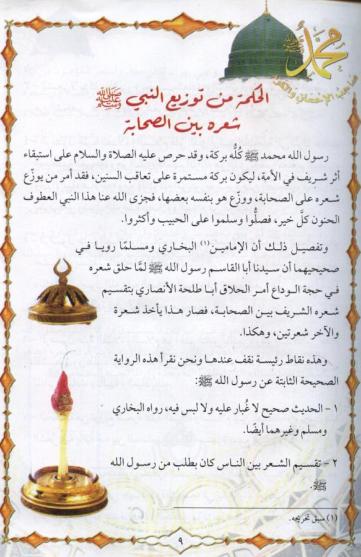 محمد ﷺ
الحكمة من توزيع النبي ﷺ
شعره بين الصحابة
رسول الله محمد ﷺ كُلُّه بركة، وقد حرص عليه الصلاة والسلام على استبقاء
أثر شريف في الأمة، ليكون بركة مستمرة على تعاقب السنين، فقد أمر من يوزّع
شعره على الصحابة، ووزّع هو بنفسه بعضها، فجزى الله عنا هذا النبي العطوف
الحنون كلَّ خير، فصلُّوا وسلموا على الحبيب وأكثروا.
وتفصيل ذلك أن الإمامين(١) البخاري ومسلمًا رويا في
صحيحيهما أن سيدنا أبا القاسم رسول الله ﷺ لمَّا حلق شعره
في حجة الوداع أمر الحلاق أبا طلحة الأنصاري بتقسيم
شعره الشريف بين الصحابة، فصار هذا يأخذ شعرة
والآخر شعرتين، وهكذا.
وهذه نقاط رئيسة نقف عندها ونحن نقرأ هذه الرواية
الصحيحة الثابتة عن رسول الله ﷺ:
١ - الحديث صحيح لا غُبار عليه ولا لبس فيه، رواه البخاري
ومسلم وغيرهما أيضًا.
٢ - تقسيم الشعر بين الناس كان بطلب من رسول الله
ﷺ.
(١) سبق تخريجه.
٩